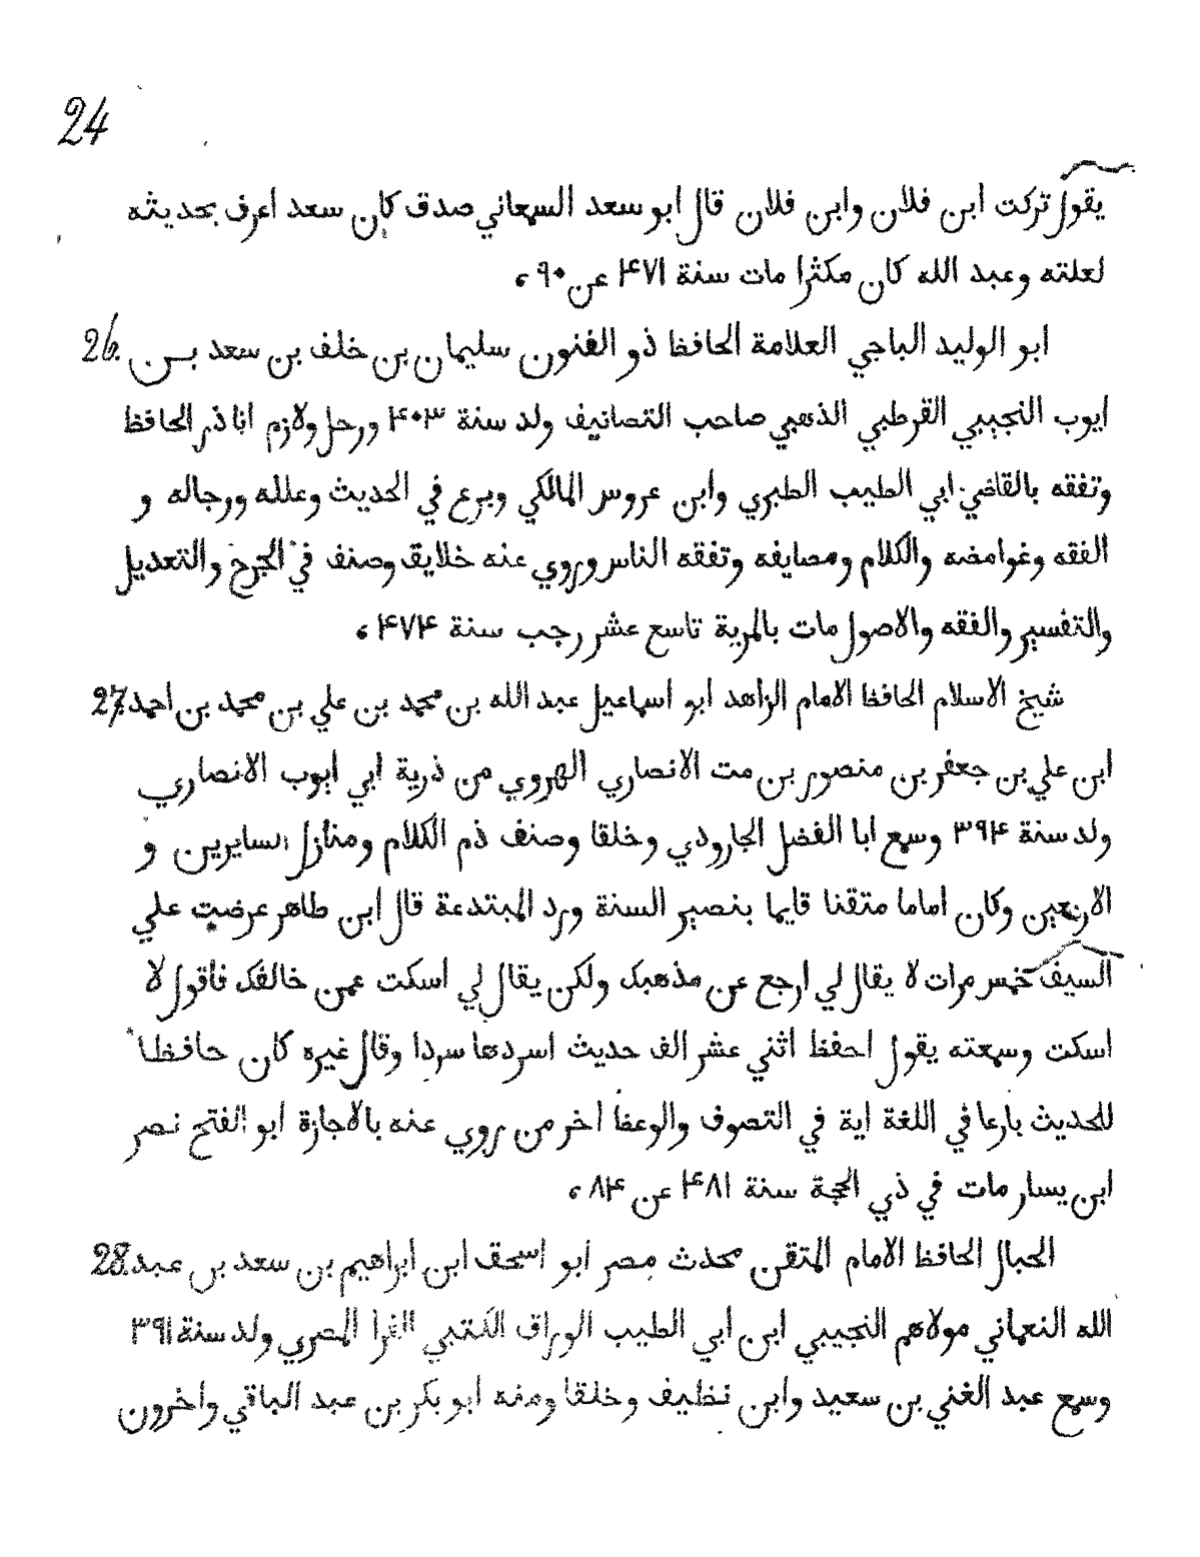 24
يقول تركت ابن فلان وابن فلان قال ابو سعد السمعاني صدق كان سعد اعرف بحديثه
لعلته وعبد الله كان مكثرا مات سنة ۴۷۱ عن ۹۰،
26. ابو الوليد الباجي العلامة الحافظ ذو الفنون سليمان بن خلف بن سعد بن
ايوب النجيبي القرطبي الذهبي صاحب التصانيف ولد سنة ۴۰۳ ورحل ولازم اباذر الحافظ
وتفقه بالقاضي ابي الطيب الطبري وابن عروس المالكي وبرع في الحديث وعلله ورجاله و
الفقه وغوامضه والكلام ومضايفه وتفقه الناس وروي عنه خلايق وصنف في الجرح والتعديل
والتفسير والفقه والاصول مات بالمرية تاسع عشر رجب سنة ۴۷۴،
27. شيخ الاسلام الحافظ الامام الزاهد ابو اسماعيل عبد الله بن محمد بن علي بن محمد بن احمد
ابن علي بن جعفر بن منصور بن مت الانصاري الهروي من ذرية ابي ايوب الانصاري
ولد سنة ۳۹۴ وسمع ابا الفضل الجارودي وخلقا وصنف ذم الكلام ومنازل السايرين و
الاربعين وكان اماما متقنا قايما بنصير السنة ورد المبتدعة قال ابن طاهر عرضت علي
السيف خمس مرات لا يقال لي ارجع عن مذهبك ولكن يقال لي اسكت عمن خالفك فاقول لا
اسكت وسمعته يقول احفظ اثني عشر الف حديث اسردها سردا وقال غيره كان حافظا
للحديث بارعا في اللغة اية في التصوف والوعظ اخر من روي عنه بالاجازة ابو الفتح نصر
ابن يسار مات في ذي الحجة سنة ۴۸۱ عن ۸۴،
28. الحبال الحافظ الامام المتقن محدث مصر ابو اسحق ابن ابراهيم بن سعد بن عبد
الله النعماني مولاهم النجيبي ابن ابي الطيب الوراق الكتبي الفرا المصري ولد سنة ۳۹۱
وسمع عبد الغني بن سعيد وابن نظيف وخلقا ومنه ابو بكر بن عبد الباقي واخرون